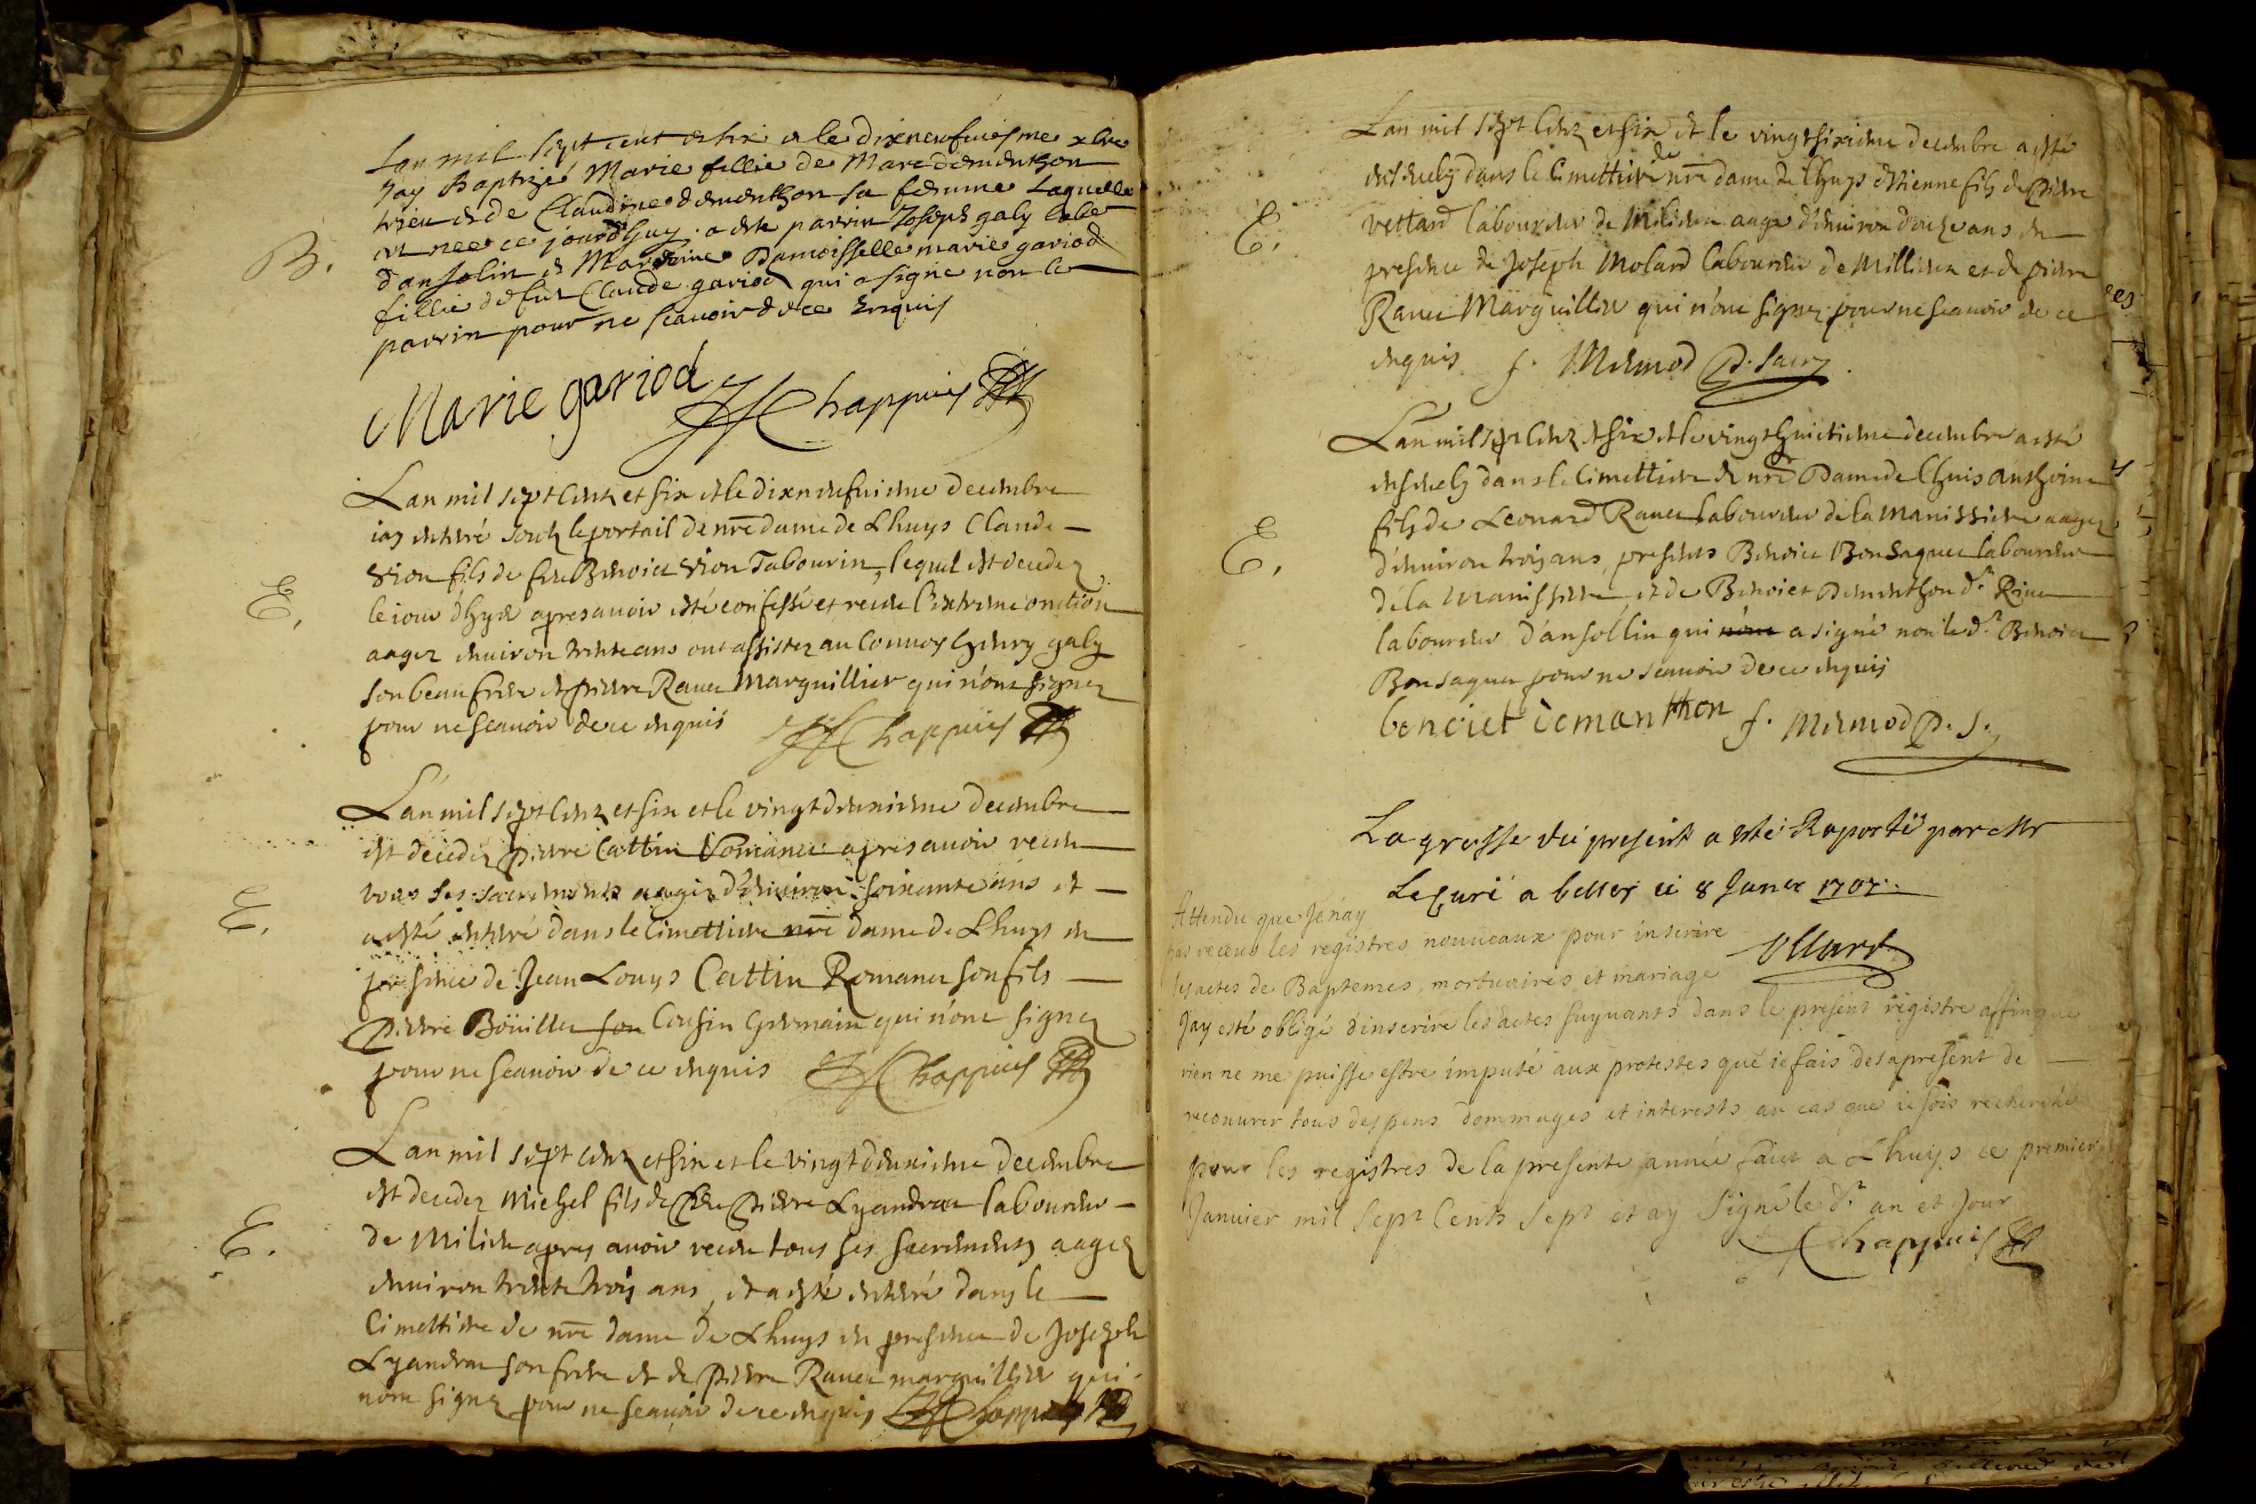 Lan mil sept cent et six et le dixneufuiesme xbre
Jay Baptizé Marie fillie de Marc dementhon
et de Claudine dementhon sa femme Laquelle
est nee ce jourdhuy a este parrin Joseph galy labr
B.
dansolin et Marrine Damoisselle marie gariod
fillie de feu Claude gariod qui a signe non le
parrin pour ne scauoir de ce enquis
Marie gariod Chappuis
Lan mil sept centz et six et le dixneufuieme decembre
iay enterré soubz le portail de nre dame de Lhuys Claude
Vion fils de feu Benoict Vion Tabourin, lequel est decedez
E.
le iour d'hyer apres auoir esté confessé et receu l'extreme onction
aagez enuiron trente ans ont assistez au Conuoy henry galy
son beau frere et pierre Rauet Marguillier qui n'ont signez
pour ne scauoir de ce enquis Chappuis
Lan mil sept centz et six et le vingtdeuxieme decembre
est decedez pierre Cattin Romanet apres auoir receu
tous ses sacrements aagez d'enuiron soixante ans et
E.
a esté enterré dans le Cimettiere nre dame de Lhuys en
presence de Jean Louys Cattin Romanet son fils
pierre Boüillet son Cousin Germain qui n'ont signez
pour ne scauoir de ce enquis Chappuis
Lan mil sept centz et six et le vingtdeuxieme decembre
est decedez Michel fils de feu pierre Lyandrat laboureur
E.
de Milieu apres auoir receu tous ses sacrements aagez
enuiron trente trois ans, et a esté enterré dans le
Cimettiere de nre dame de Lhuys en presence de Joseph
Lyandrat son frere et de pierre Rauet marguillier qui
nont signez pour ne scauoir de ce enquis Chappuis
Lan mil sept centz et six et le vingtsixieme decembre a esté
enseuely dans le Cimettiere de nre dame de Lhuys estienne fils de pierre
E.
vettard laboureur de Milieu aagé d'enuiron douze ans en
presence de Joseph Molard laboureur de Millieu et de pierre
Rauet Marguillier qui n'ont signez pour ne scauoir de ce
enquis f. Mermod p. sacr.
Lan mil sept centz et six et le vingthuictieme decembre a esté
enseuely dans le Cimettiere de nre Dame de Lhuis anthoine
fils de Leonard Rauet laboureur de la Manissiere aagez
E.
d'enuiron trois ans, presents Benoict Bonsaquet laboureur
de la Manissiere, et de Benoict Dementhon dt Rive
laboureur d'ansollin qui n'ont a signé non le dt Benoict
Bonsaquet pour ne scauoir de ce enquis
benoict demanthon f. Mermod p. s.
La grosse du present a esté Raporté par Mr
Le Curé a belley ce 8 Janer 1707.
Attendu que Je nay
pas receus les registres nouueaux pour inscrire
les actes de Baptemes, mortuaires, et mariage
Jay esté obligé d'inscrire les actes suyuants dans le present registre affinque
rien ne me puisse estre imputé aux protestes que ie fais des apresent de
recouurer tous despens dommages et interests au cas que ie sois recherché
pour les registres de la presente année fait a Lhuys ce premier
Januier mil sept Cents sept et ay Signé le dt an et Jour
Chappuis